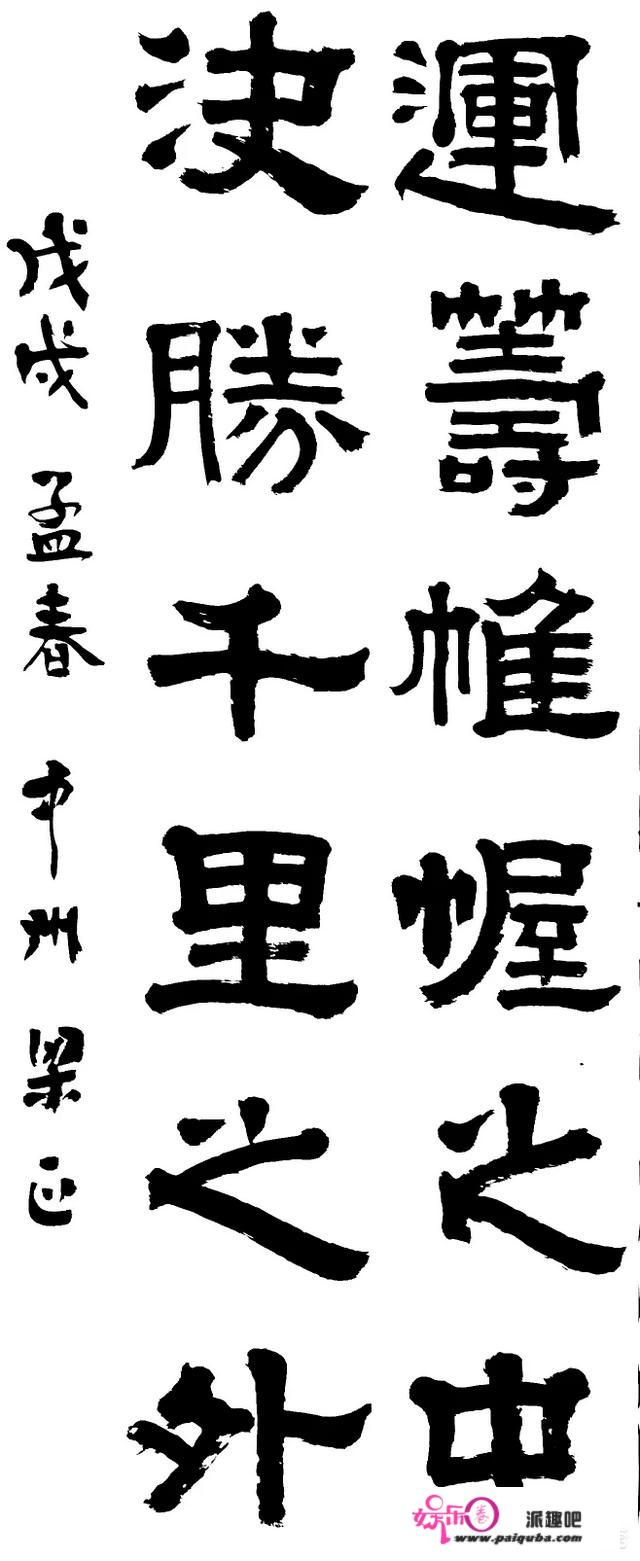 運籌帷幄之中
決勝千里之外
戊戌 孟春 中州 梁正
娱乐圈 派趣吧
www.paiquba.com